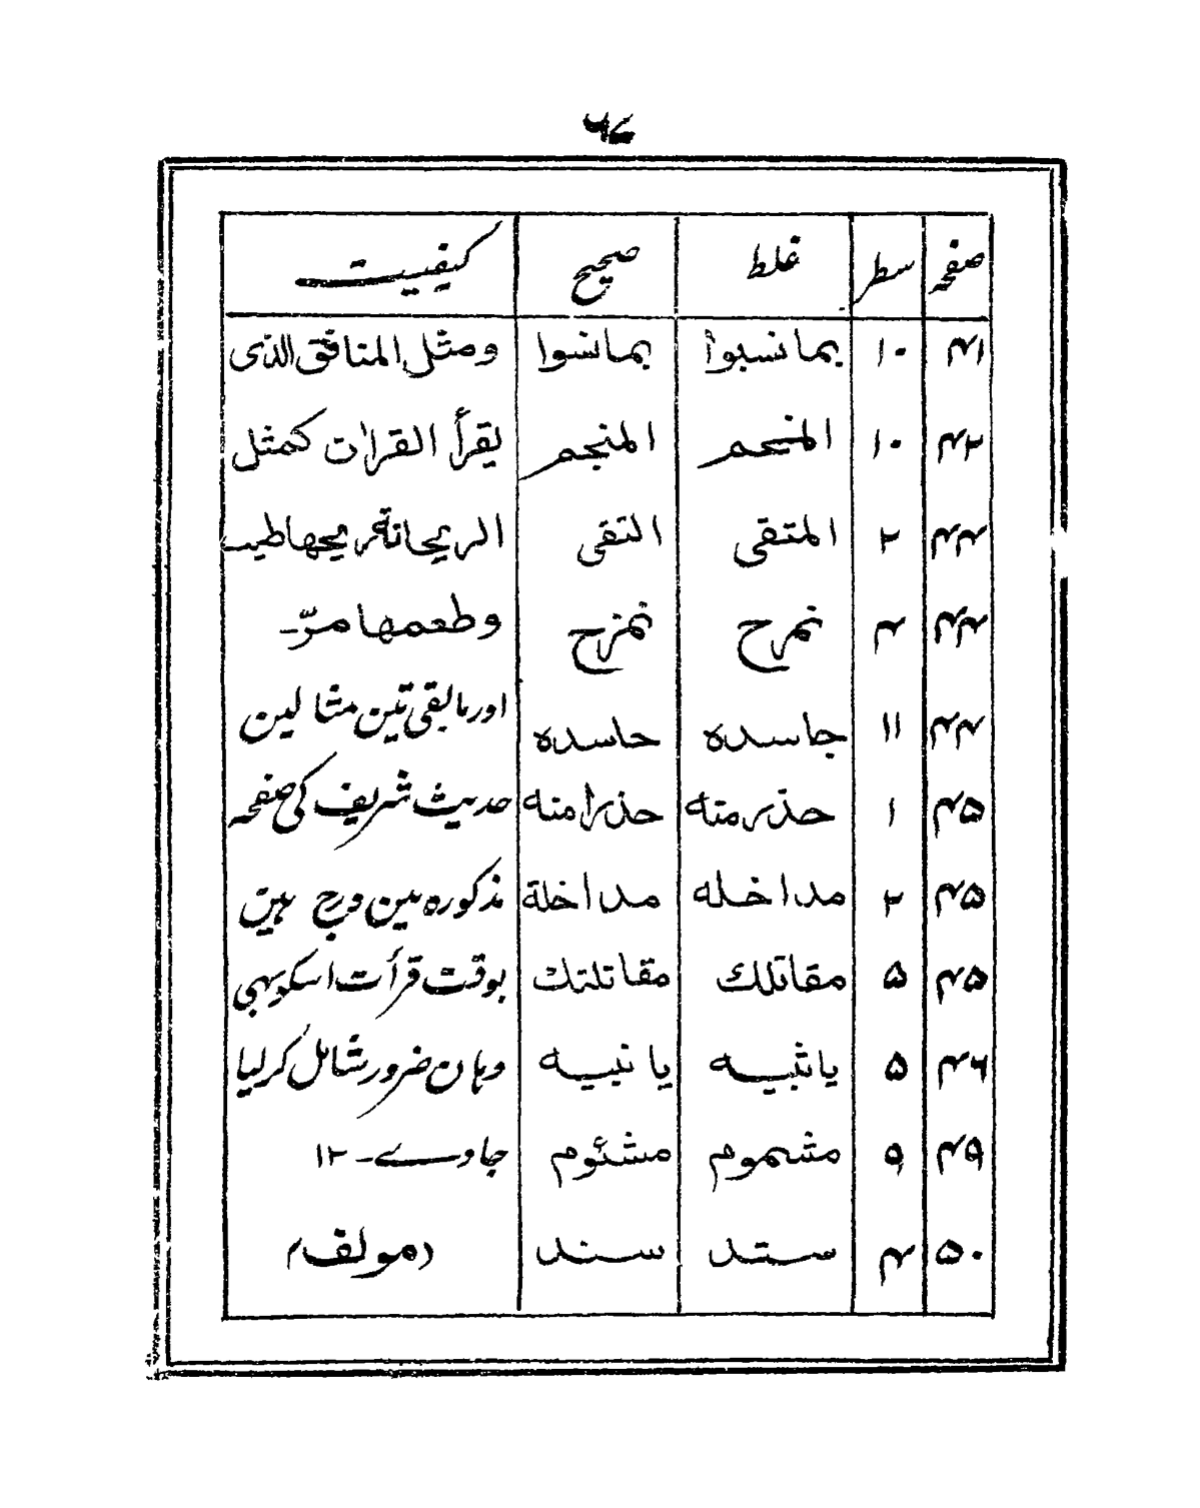 ۶۷
صفحہ سطر غلط صحیح کیفییت
۴۱ ۱۰ بمانسبوا بمانسوا ومثل المنافق الذی
۴۲ ۱۰ المنحم المنجم یقرأ القراٰن کمثل
۴۴ ۲ المتقی التقی الریحانة ریحها طیب
۴۴ ۴ نمرح نمزح وطعمها مرّ۔
۴۴ ۱۱ جاسدہ حاسدہ اور مابقی تین مثالین
۴۵ ۱ حذرمتہ حذرامنہ حدیث شریف کی صفحہ
۴۵ ۲ مداخلہ مداخلة مذکورہ مین درج ہین
۴۵ ۵ مقاتلك مقاتلتك بوقت قرأت اسکوبہی
۴۶ ۵ یاثبیہ یانبیہ وہان ضرور شامل کرلیا
۴۹ ۹ مشموم مشئوم جاوے۔ ۱۲
۵۰ ۴ ستد سند (مولف)